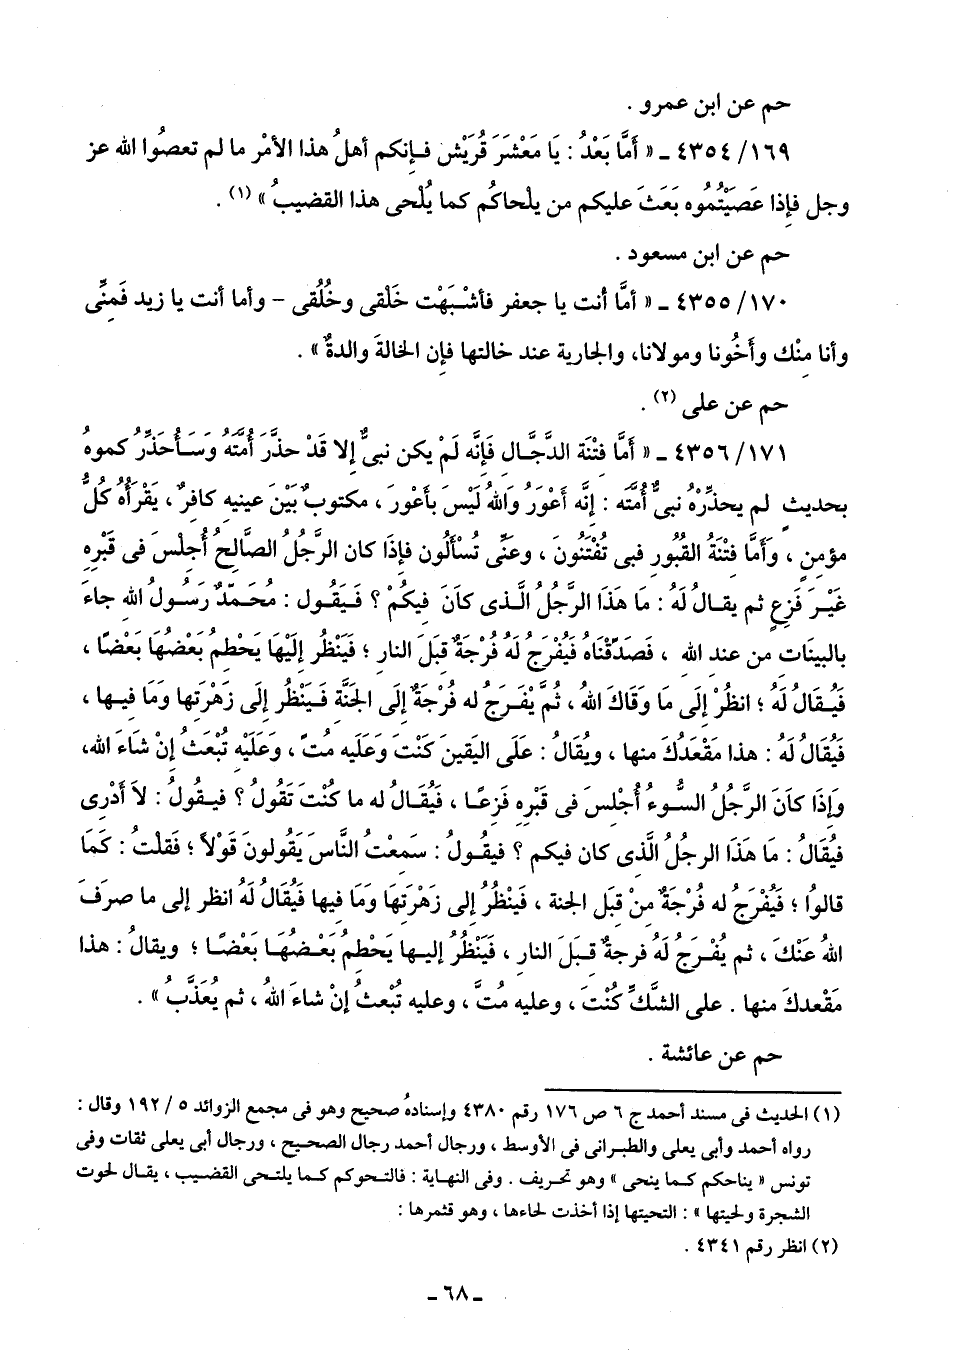 حم عن ابن عمرو .
١٦٩/ ٤٣٥٤ ـ « أَمَّا بَعْدُ : يَا مَعْشَرَ قُرَيْش فـإِنكم أهلُ هذا الأمْر ما لم تعصُوا الله عز
وجل فإِذا عَصَيْتُمُوه بَعَثَ عليكم من يلْحاكُم كما يُلْحى هذا القضيبُ » (١) .
حم عن ابن مسعود .
١٧٠/ ٤٣٥٥ ـ « أمَّا أنت يا جعفر فأشْبَهْت خَلْقى وخُلُقى – وأما أنت يا زيد فَمِنِّى
وأنا مِنْك وأَخُونا ومولانا، والجارية عند خالتها فإِن الخالةَ والدةٌ » .
حم عن على (٢) .
١٧١/ ٤٣٥٦ ـ « أمَّا فتْنَة الدَّجَّال فَإِنَّه لَمْ يكن نبىٌّ إلا قَدْ حذَّرَ أُمَّتَه وَسَأُحَذِّرُ كموهُ
بحديثٍ لم يحذِّرْهُ نبىٌّ أُمَّتَه : إِنَّه أَعْوَرُ وَاللهُ لَيْسَ بأَعْورَ ، مكتوبٌ بَيْنَ عينيه كافرٌ ، يَقْرَأُه كُلُّ
مؤمنٍ ، وَأَمَّا فِتْنَةُ القُبُور فبى تُفْتَنُونَ ، وعَنِّى تُسْأَلُون فإِذَا كان الرَّجُلُ الصَّالِحُ أُجْلسَ فى قَبْرِه
غَيْـرَ فَزِعٍ ثم يقـالُ لَهُ : مَا هَذَا الرَّجلُ الَّـذى كاَنَ فيكُمْ ؟ فَـيَقُـول : مُحَـمَّدٌ رَسُـولُ الله جاءَ
بالبينَات من عند الله ، فَصَدَّقْنَاهُ فَيُفْرَجُ لَهُ فُرْجَةٌ قبَلَ النار ؛ فَيَنْظُرُ إِلَيْهَا يَحْطِمُ بَعْضُهَا بَعْضًا ،
فَيُـقَالُ لَهُ ؛ انظُرْ إِلَى مَا وَقَاكَ اللهُ ، ثُمَّ يْفَـرَجُ له فُرْجَةٌ إِلَى الجَنَّة فَـيَنْظُرُ إِلَى زَهْرَتها وَمَا فيـها ،
فَيُقالُ لَهُ : هذا مَقْعَدُكَ منها ، ويُقَالُ : عَلَى اليَقين كُنْتَ وَعَلَيه مُتّ ، وَعَلَيْه تُبْعَثُ إِنْ شَاءَ الله،
وَإِذَا كاَنَ الرَّجُلُ السُّـوءُ أُجْلسَ فى قَبْرِه فَزعًـا ، فَيُقَـالُ له ما كُنْتَ تَقُولُ ؟ فيـقولُ : لاَ أَدْرِى
فيُقَالُ : مَا هَذَا الرجلُ الَّذى كان فيكم ؟ فيقـولُ : سَمعْتُ النَّاسَ يَقُولونَ قَوْلاً ؛ فَقلتُ : كَمَا
قالوُا ؛ فَيُفْرَجُ له فُرْجَةٌ منْ قبَل الجنة ، فَيَنْظُرُ إلى زَهْرَتهَا وَمَا فيها فَيُقَالُ لَهُ انظر إلى ما صَرفَ
اللهُ عَنْكَ ، ثم يُفْـرَجُ لَهُ فرجةٌ قبَـلَ النار ، فَيَنْظُرُ إليـها يَحْطمُ بَعْـضُهَـا بَعْضًـا ؛ ويقالُ : هذا
مَقْعدكَ منها . على الشَّكِّ كُنْتَ ، وعليه مُتَّ ، وعليه تُبْعثُ إِنْ شاءَ اللهُ ، ثم يُعَذَّبُ » .
حم عن عائشة .
(١) الحديث فى مسند أحمد ج ٦ ص ١٧٦ رقم ٤٣٨٠ وإسنادهُ صحيح وهو فى مجمع الزوائد ٥ / ١٩٢ وقال :
رواه أحمد وأبى يعلى والطبـرانى فى الأوسط ، ورجال أحمد رجال الصحيح ، ورجال أبى يعلى ثقات وفى
تونس « يناحكم كـما ينحى » وهو تحريف . وفى النهاية : فالتحوكم كـما يلتـحى القضيب ، يقـال لحوت
الشجرة ولحيتها » : التحيتها إذا أخذت لحاءها ، وهو قشرها :
(٢) انظر رقم ٤٣٤١ .
ـ ٦٨ ـ